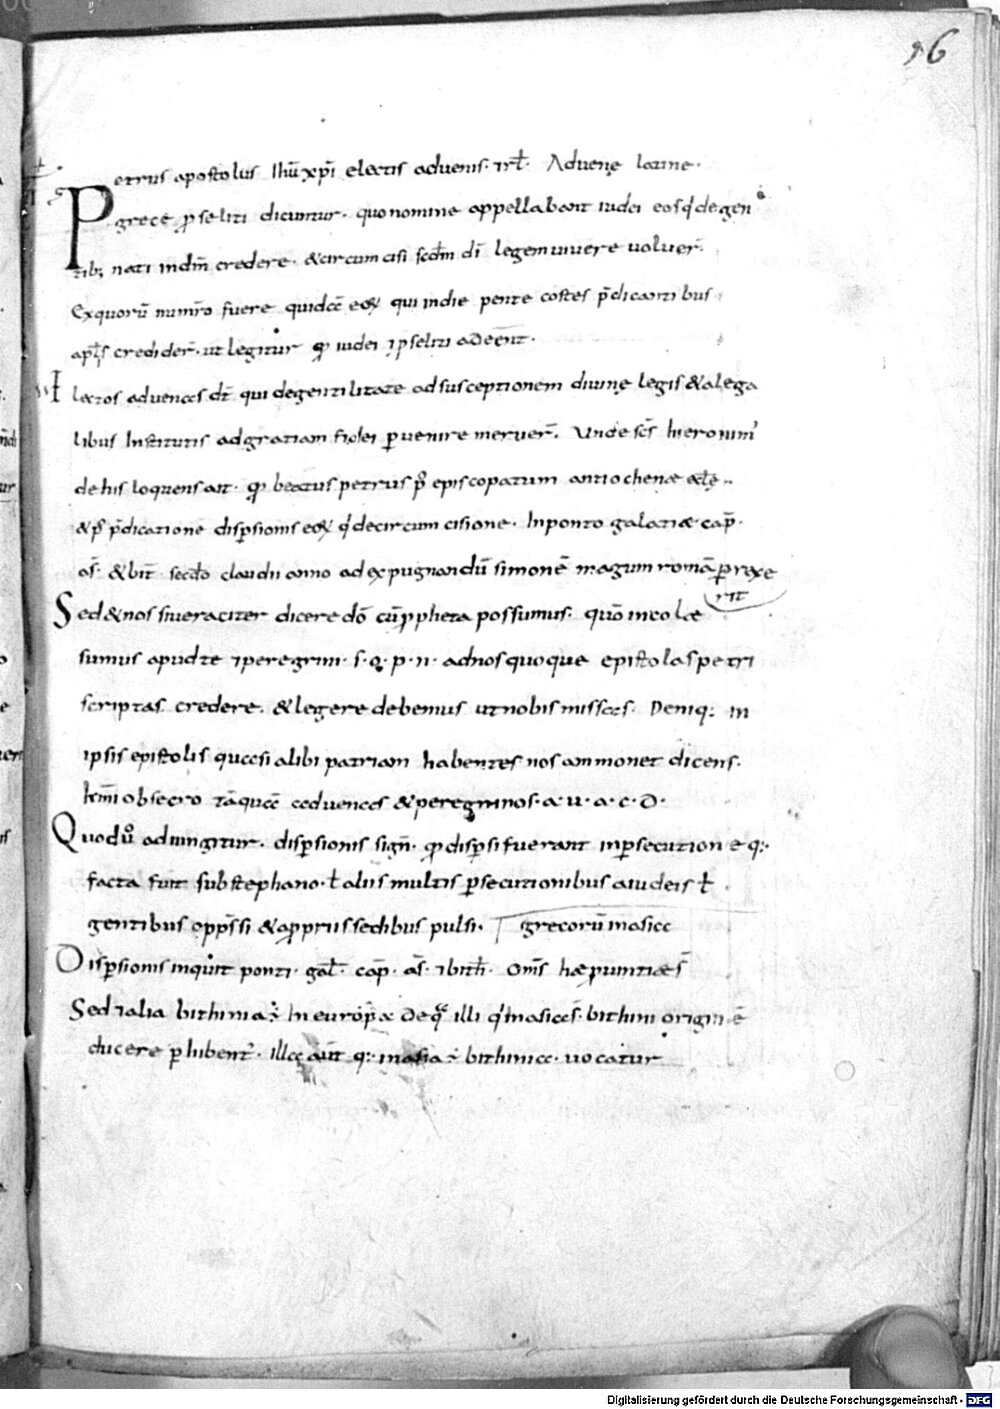 96
Petrus apostolus Ihū xp̄i electis advenis · ⁊ rł · Advenę latine ·
grece p̱seliti dicuntur · quo nomine appellabant iudei eos qͥ de gen
tib; nati in dm̄ credere · & circumcisi scdm̄ dī legem uiuere uoluer̄ ·
Ex quorū numr̄o fuere quidā eoꝝ qui in die pente costes p̄dicantibus
aplīs credider̄ · ut legitur qd̄ iudei ⁊ p̱seliti adeēnt ·
Electos aduenas dt̄ qui de gentilitate ad susceptionem diuinę legis & a lega
libus Institutis ad gratiam fidei ꝑuenire meruer̄ · Unde scs̄ hieronim᾽
de his loquens ait · qd̄ beatus petrus pꝰ episcopatum antiochenæ ecłę ··
& pꝰ p̄dicatione dispersionis eoꝝ qͥ de circumcisione · In ponto galatiæ · cap̄ ·
as̄ · & bit̄ secdō claudii anno ad expugnandū simonē magum romā ꝑrexe
rit
Sed & nos si ueraciter dicere dō cū ꝓpheta possumus · quō incolæ
sumus apud te ⁊ peregrini · s · q · p · n · ad nos quoque epistolas petri
scriptas credere · & legere debemus ut nobis missas · Deniq: in
ipsis epistolis quasi alibi patriam habentes nos ammonet dicens ·
kmī obsecro tāquā aduenas & peregrinos · a · u · a · c · d ·
Quod ůo adiungitur · disꝑsionis sign̄ · qd̄ disꝑsi fuerant in ꝑsecutione q:·
facta fuit sub stephano · ł aliis multis ꝑsecutionibus a iudeis ł
gentibus opp̄ssi & a ꝓpriis sedibus pulsi · grecorū in asia
Disꝑsionis inquit ponti · gał · cap̄ · as̄ · ⁊ bith̄ · Oms̄ hæ ꝓuintiæ s̄
Sed ⁊ alia bithinia ÷ In europ̄a de qͣ illi qͥ in asia s̄ · bithini originē
ducere ꝑhibent᾽ · Illa aut̄ q: in asia ÷ bithinia · uocatur
Digitalisierung gefördert durch die Deutsche Forschungsgemeinschaft - DFG